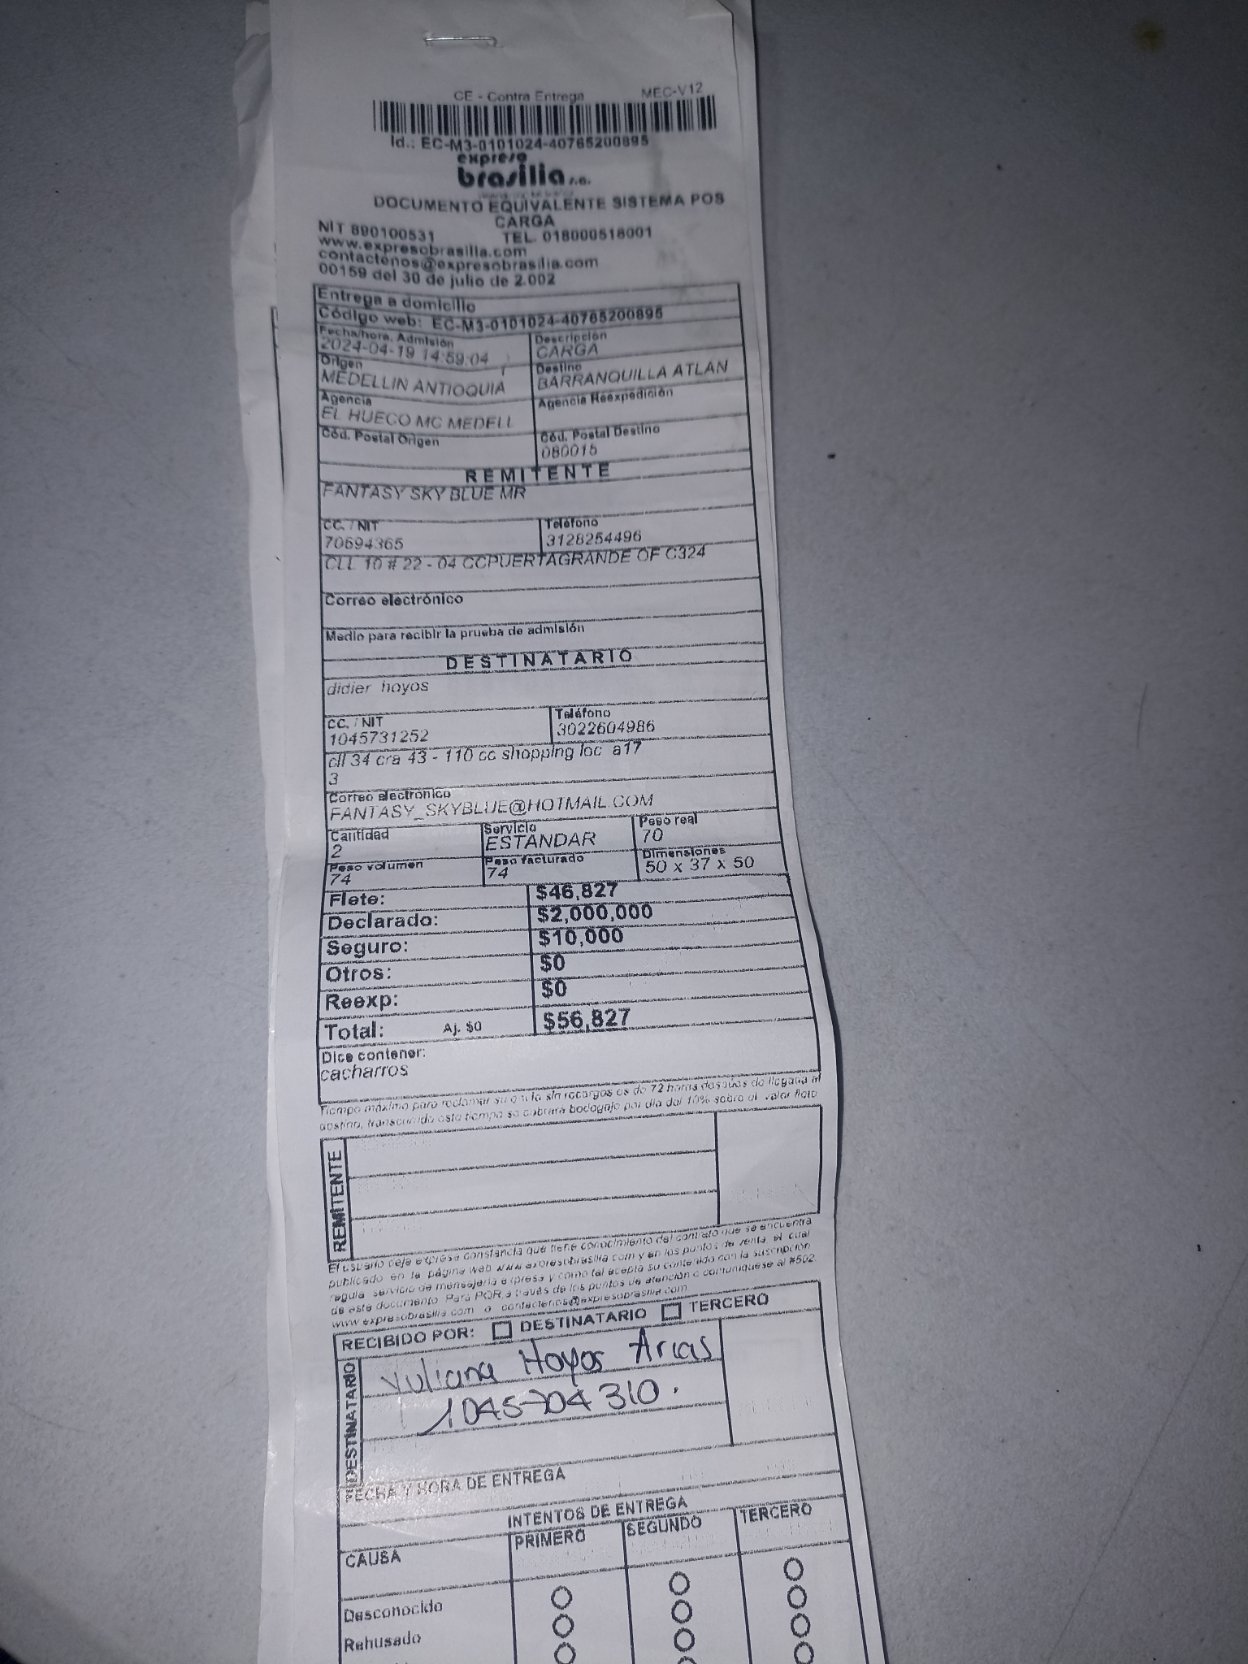 CE - Contra Entrega MEC-V12
Id.: EC-M3-0101024-40765200895
expreso
brasilia s.a.
DOCUMENTO EQUIVALENTE SISTEMA POS
CARGA
NIT 890100531 TEL. 018000518001
www.expresobrasilia.com
contactenos@expresobrasilia.com
00159 del 30 de julio de 2.002
Entrega a domicilio
Código web: EC-M3-0101024-40765200895
Fecha/hora. Admisión Descripción
2024-04-19 14:59:04 CARGA
Origen Destino
MEDELLIN ANTIOQUIA BARRANQUILLA ATLAN
Agencia Agencia Reexpedición
EL HUECO MC MEDELL
Cód. Postal Origen Cód. Postal Destino
080015
REMITENTE
FANTASY SKY BLUE MR
CC. / NIT Teléfono
70694365 3128254496
CLL 10 # 22 - 04 CCPUERTAGRANDE OF C324
Correo electrónico
Medio para recibir la prueba de admisión
DESTINATARIO
didier hoyos
CC. / NIT Teléfono
1045731252 3022604986
cll 34 cra 43 - 110 cc shopping loc a17
3
Correo electronico
FANTASY_SKYBLUE@HOTMAIL.COM
Cantidad Servicio Peso real
2 ESTANDAR 70
Peso volumen Peso facturado Dimensiones
74 74 50 x 37 x 50
Flete: $46,827
Declarado: $2,000,000
Seguro: $10,000
Otros: $0
Reexp: $0
Total: Aj. $0 $56,827
Dice contener:
cacharros
Tiempo máximo para reclamar su envío sin recargos es de 72 horas después de llegada al
destino, transcurrido este tiempo se cobrara bodegaje por día del 10% sobre el valor flete
REMITENTE
El usuario deja expresa constancia que tiene conocimiento del contrato que se encuentra
publicado en la página web www.expresobrasilia.com y en los puntos de venta, el cual
regula servicio de mensajería expresa y como tal acepta su contenido con la suscripción
de este documento. Para PQR a través de los puntos de atención o comuniquese al #502.
www.expresobrasilia.com o contactenos@expresobrasilia.com
RECIBIDO POR: DESTINATARIO TERCERO
DESTINATARIO
Yuliana Hoyos Arias
1045704310.
FECHA Y HORA DE ENTREGA
INTENTOS DE ENTREGA
CAUSA PRIMERO SEGUNDO TERCERO
Desconocido
Rehusado